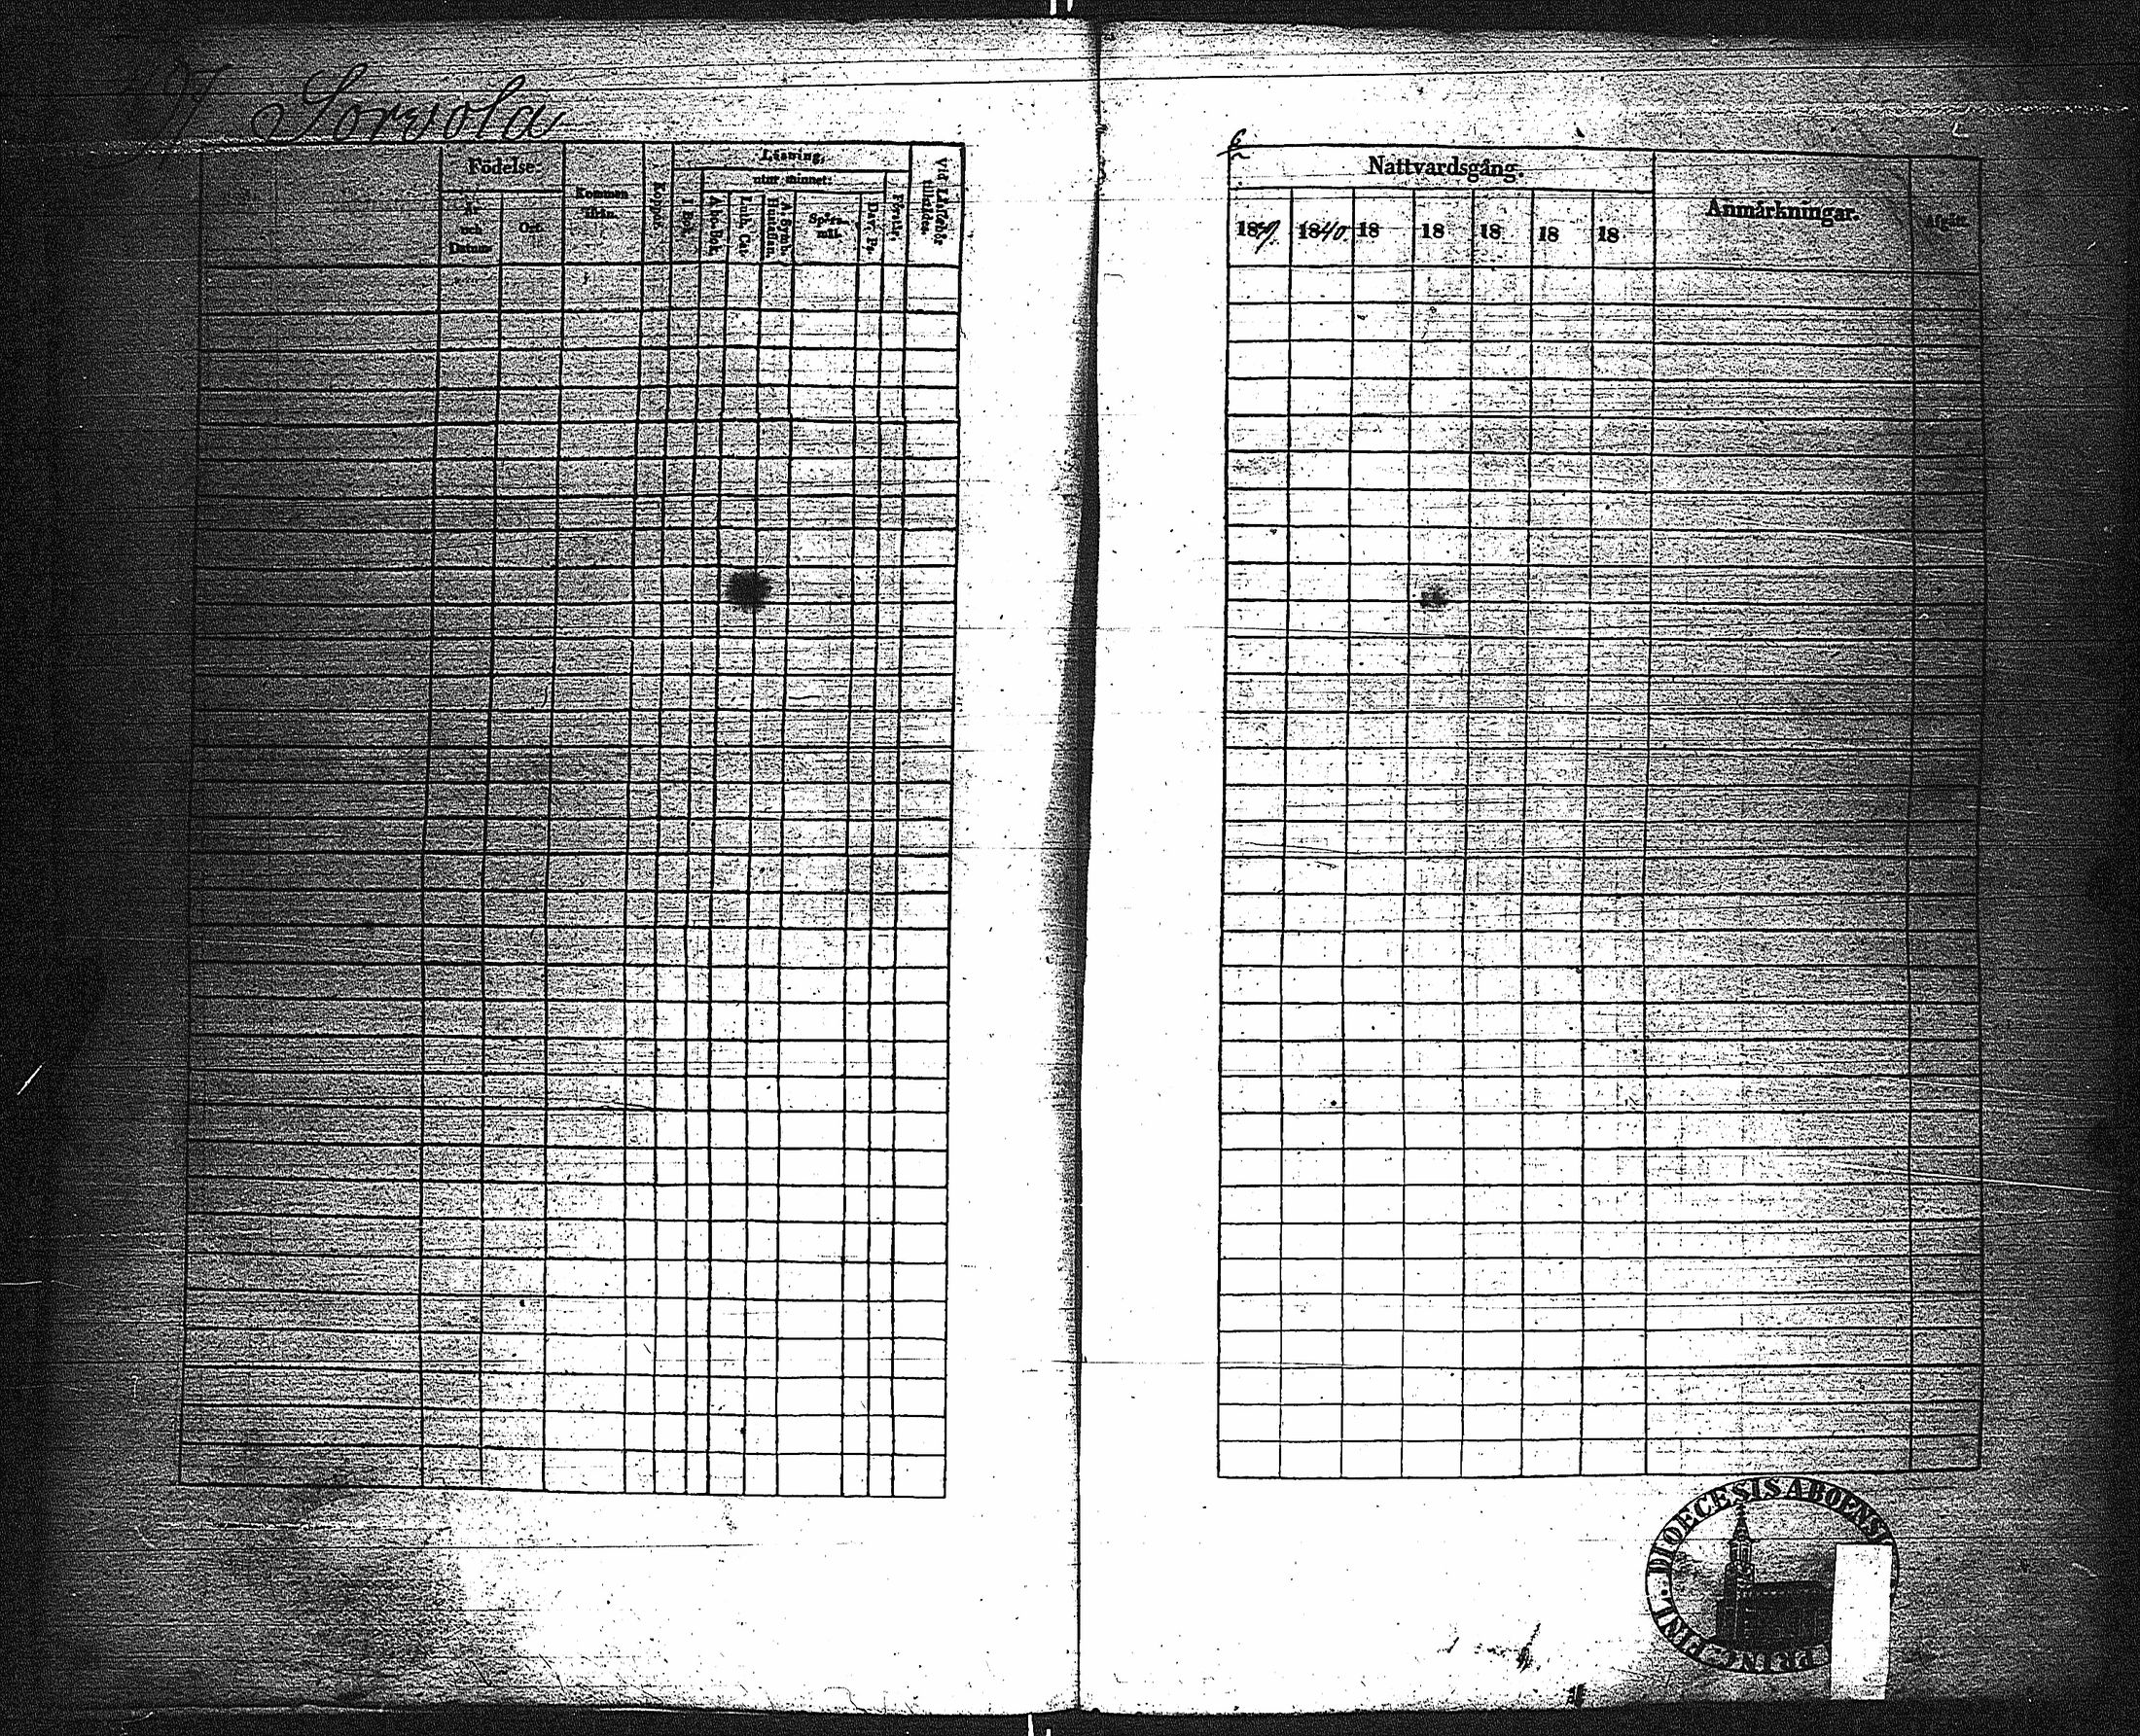 Sorvola
Födelse.
År och Datum.
Ort.
Kommen ifrån.
Koppor.
Läsning,
utur minnet:
I Bok.
A-bo-Bok.
Luth. Cat.
A. Symb. Hustaflan.
Spörsmål.
Dav. Ps.
Förstår.
Vid Läsförhör tillstädes.
Nattvardsgång.
1839. 1840. 18 18 18 18 18
Anmärkningar.
Afgått.
DIOECESIS ABOENSI
PRINC. FINL.